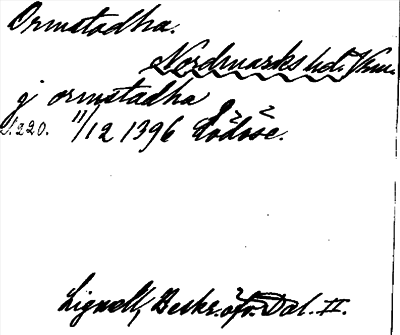 Ormstadha.
Nordmarks hd. Vrm.
j ormstadha
s. 220. 11/12 1396 Lödöse.
Lignell, Beskr. öfv. Dal. II.